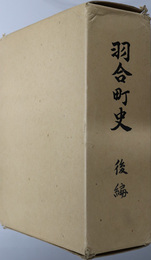 羽合町史
後編